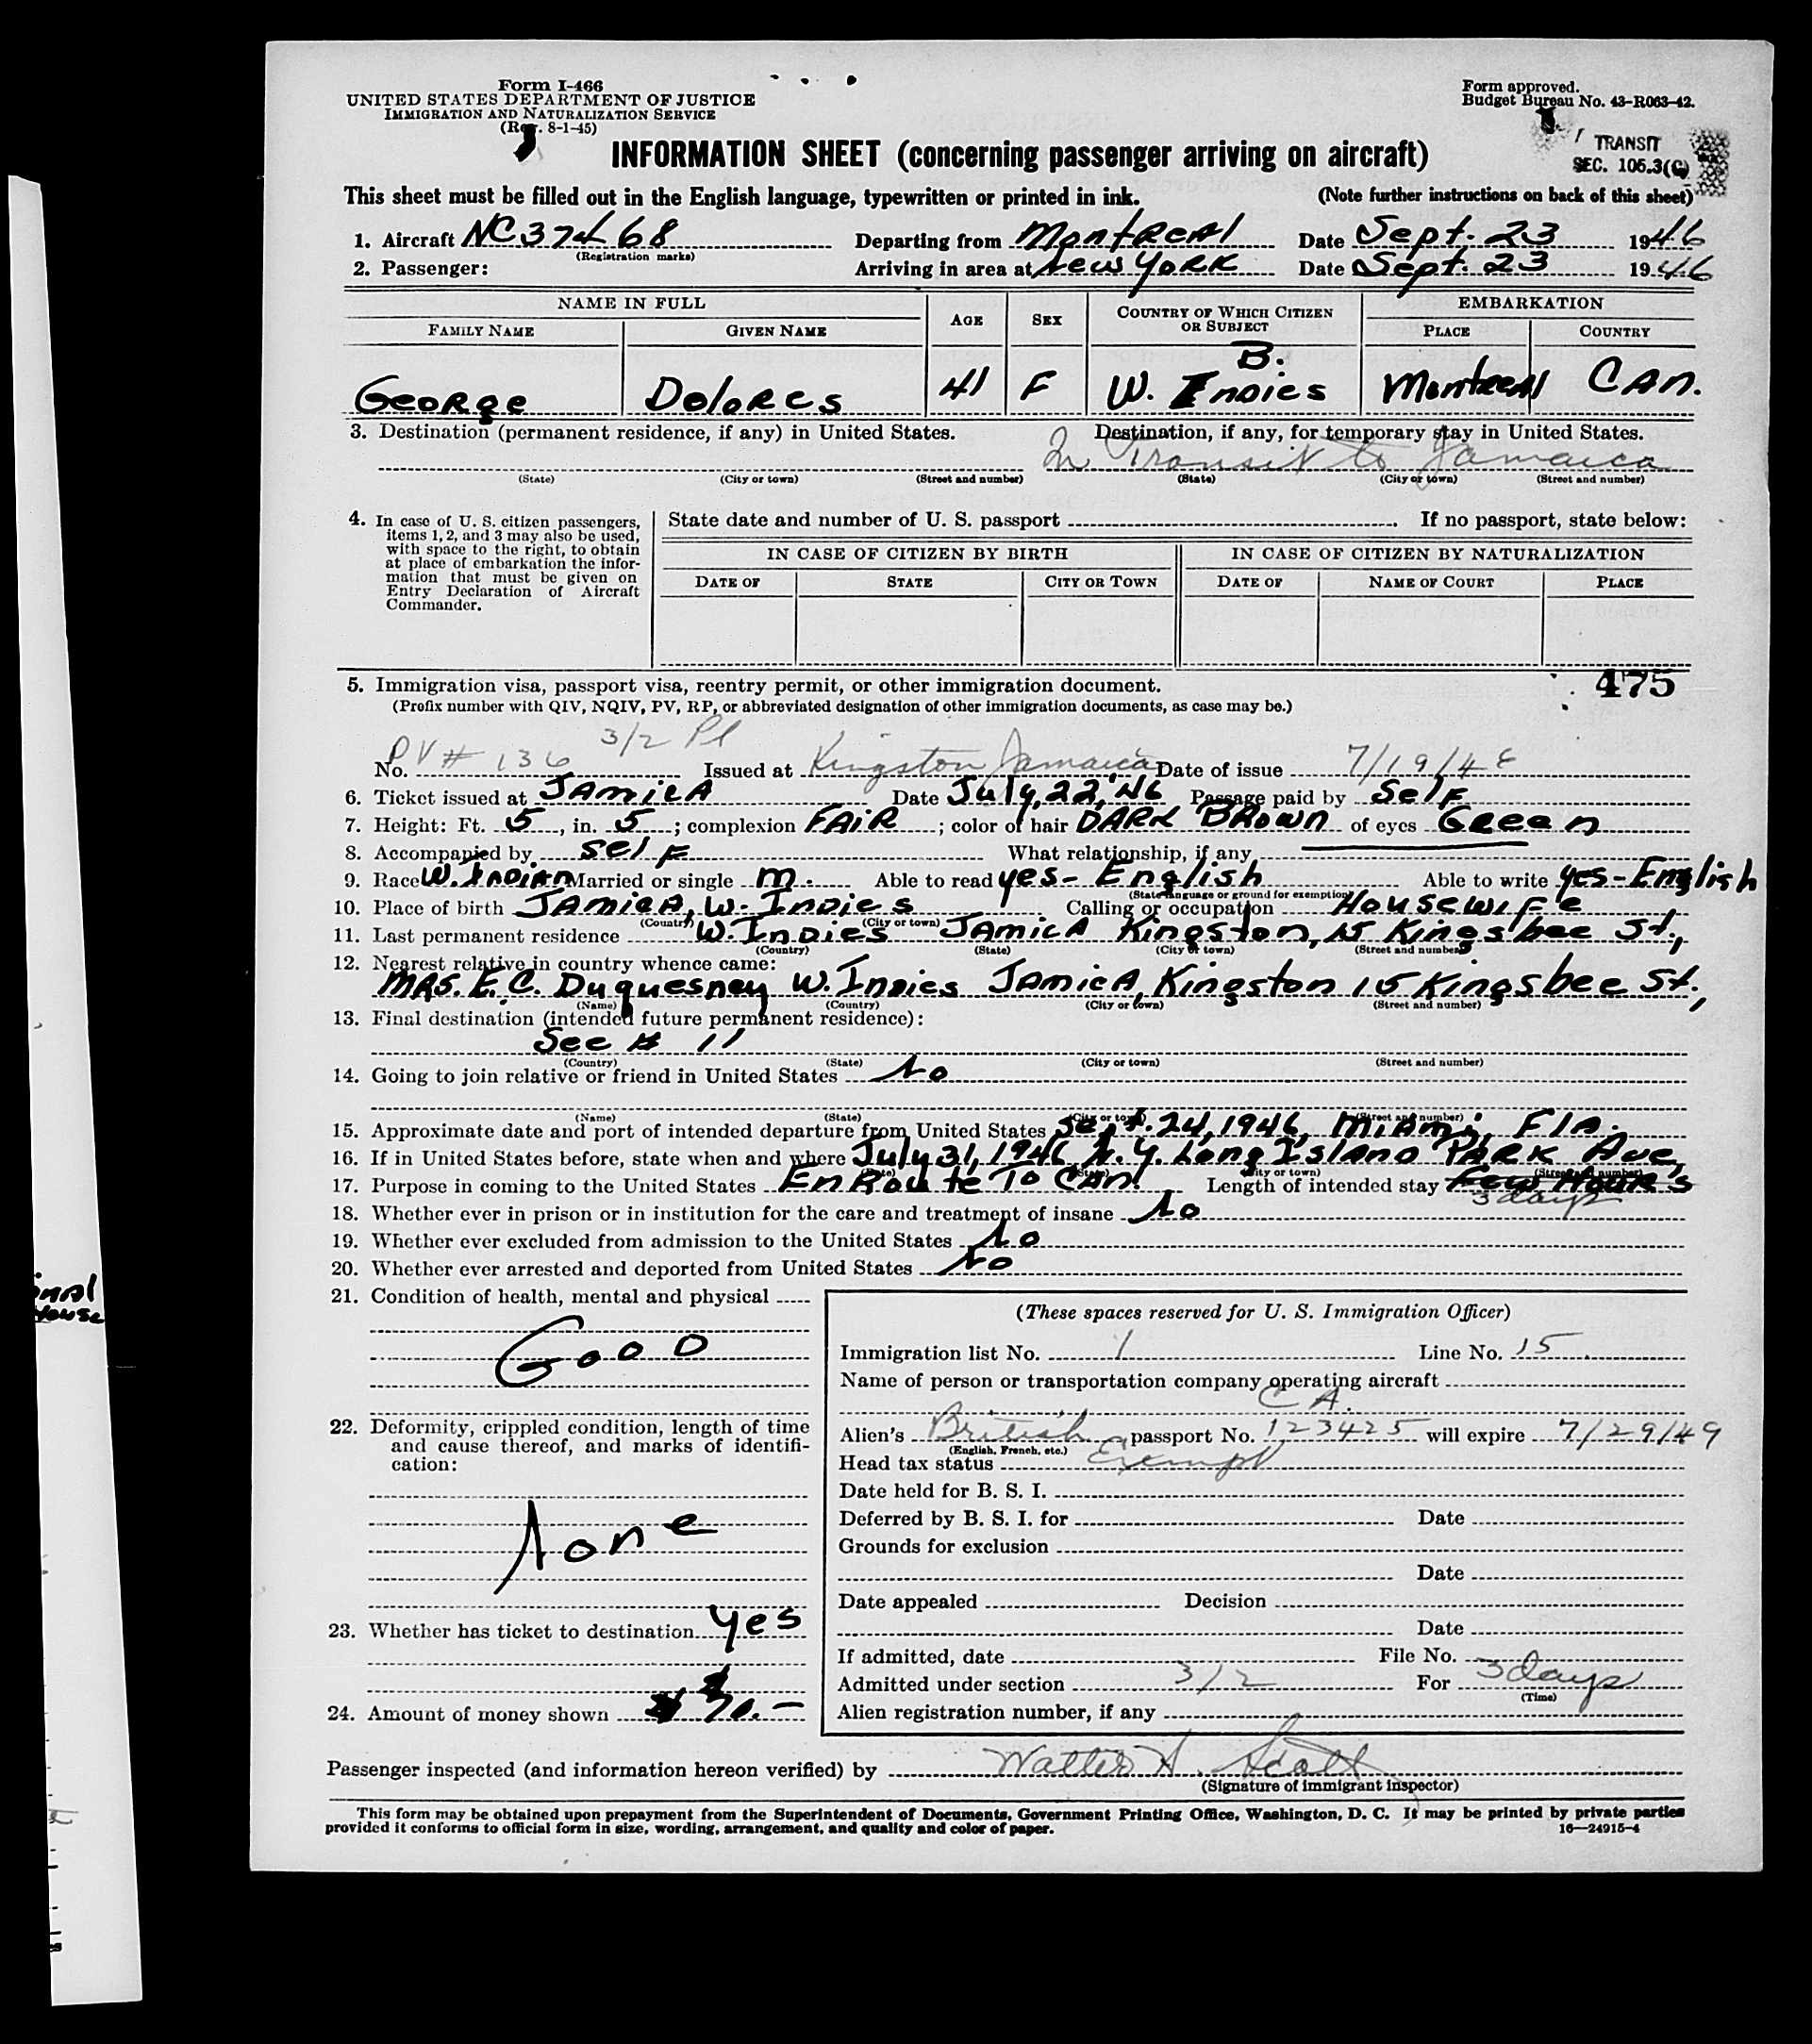 Form I-466
UNITED STATES DEPARTMENT OF JUSTICE
IMMIGRATION AND NATURALIZATION SERVICE
(Rev. 8-1-45)
Form approved.
Budget Bureau No. 43-R063-42.
TRANSIT
SEC. 105.3(C)
INFORMATION SHEET (concerning passenger arriving on aircraft)
This sheet must be filled out in the English language, typewritten or printed in ink. (Note further instructions on back of this sheet)
1. Aircraft NC37468 Departing from Montreal Date Sept. 23 1946
(Registration marks)
2. Passenger: Arriving in area at New York Date Sept. 23 1946
NAME IN FULL AGE SEX COUNTRY OF WHICH CITIZEN OR SUBJECT EMBARKATION
FAMILY NAME GIVEN NAME PLACE COUNTRY
B.
George Dolores 41 F W. Indies Montreal Can.
3. Destination (permanent residence, if any) in United States. Destination, if any, for temporary stay in United States.
In Transit to Jamaica
(State) (City or town) (Street and number) (State) (City or town) (Street and number)
4. In case of U. S. citizen passengers, items 1, 2, and 3 may also be used, with space to the right, to obtain at place of embarkation the information that must be given on Entry Declaration of Aircraft Commander.
State date and number of U. S. passport If no passport, state below:
IN CASE OF CITIZEN BY BIRTH IN CASE OF CITIZEN BY NATURALIZATION
DATE OF STATE CITY OR TOWN DATE OF NAME OF COURT PLACE
475
5. Immigration visa, passport visa, reentry permit, or other immigration document.
(Prefix number with QIV, NQIV, PV, RP, or abbreviated designation of other immigration documents, as case may be.)
3/2 Pl
No. PV# 136 Issued at Kingston Jamaica Date of issue 7/19/46
6. Ticket issued at JAmicA Date July, 22, '46 Passage paid by Self
7. Height: Ft. 5, in. 5; complexion FAiR; color of hair DARK BROWN of eyes Green
8. Accompanied by self What relationship, if any
9. Race W. Indian Married or single m. Able to read yes- English Able to write yes-English
(State language or ground for exemption)
10. Place of birth JAmicA, W. Indies Calling or occupation Housewife
(Country) (City or town)
11. Last permanent residence W. Indies JAmicA Kingston, 15 Kingsbee St.,
(Country) (State) (City or town) (Street and number)
12. Nearest relative in country whence came:
MRS. E. C. Duquesney W. Indies JAmicA, Kingston 15 Kingsbee St.,
(Name) (Country) (City or town) (Street and number)
13. Final destination (intended future permanent residence):
See # 11
(Country) (State) (City or town) (Street and number)
14. Going to join relative or friend in United States No
(Name) (State) (City or town) (Street and number)
15. Approximate date and port of intended departure from United States Sept. 24, 1946, Miami, Fla.
16. If in United States before, state when and where July 31, 1946 N. Y. Long Island PARK Ave,
(Date) (State) (City or town) (Street and number)
17. Purpose in coming to the United States En Route To CAn. Length of intended stay Few Hours
3 days
18. Whether ever in prison or in institution for the care and treatment of insane No
19. Whether ever excluded from admission to the United States No
20. Whether ever arrested and deported from United States No
21. Condition of health, mental and physical
Good
22. Deformity, crippled condition, length of time and cause thereof, and marks of identification:
None
23. Whether has ticket to destination yes
24. Amount of money shown
(These spaces reserved for U. S. Immigration Officer)
Immigration list No. 1 Line No. 15
Name of person or transportation company operating aircraft
C A.
Alien's British passport No. 123425 will expire 7/29/49
(English, French, etc.)
Head tax status Exempt
Date held for B. S. I.
Deferred by B. S. I. for Date
Grounds for exclusion
Date
Date appealed Decision
Date
If admitted, date File No.
Admitted under section 3/2 For 3 days
(Time)
Alien registration number, if any
Passenger inspected (and information hereon verified) by Walter A. Scott
(Signature of immigrant inspector)
This form may be obtained upon prepayment from the Superintendent of Documents, Government Printing Office, Washington, D. C. It may be printed by private parties
provided it conforms to official form in size, wording, arrangement, and quality and color of paper. 16—24915-4